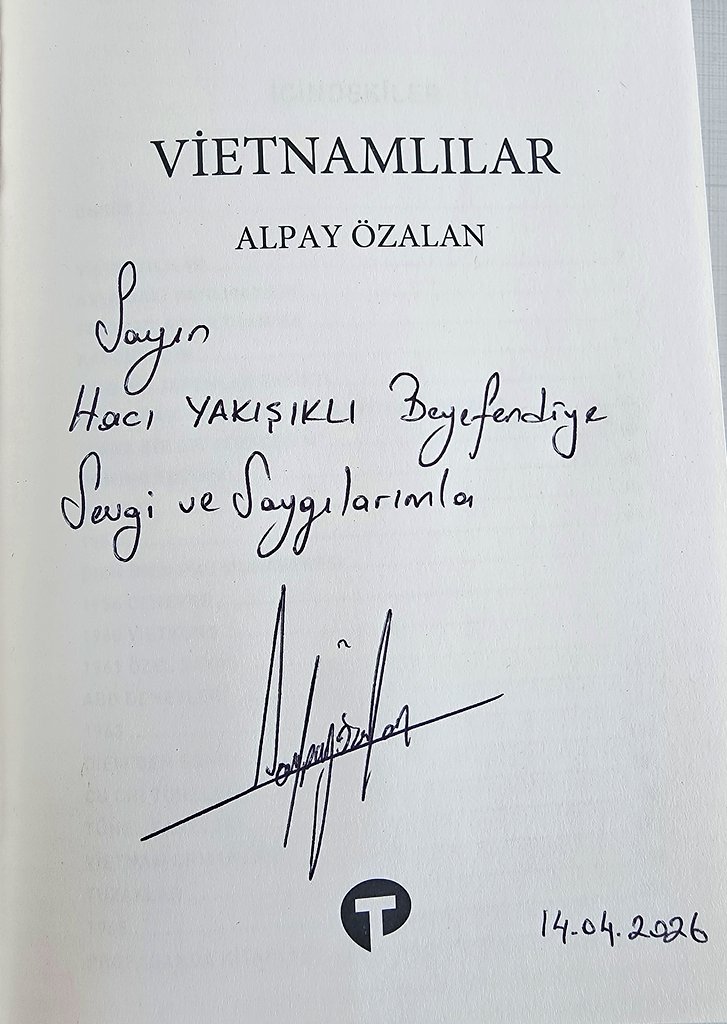 VİETNAMLILAR
ALPAY ÖZALAN
Sayın
Hacı YAKIŞIKLI Beyefendiye
Sevgi ve Saygılarımla
T
14.04.2026